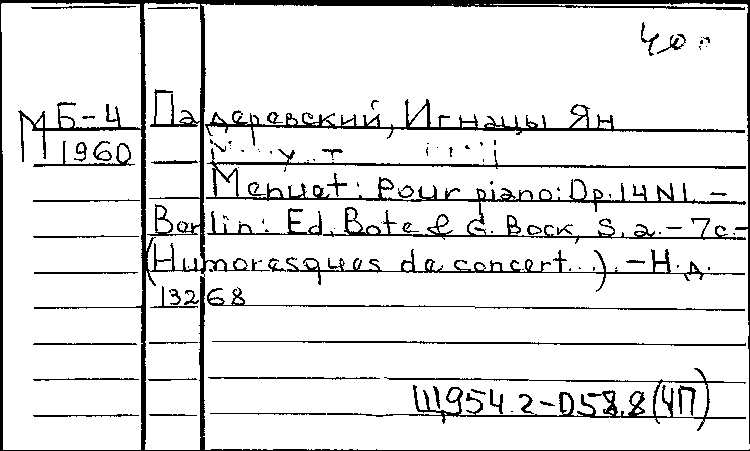 40
М Б-4 Падеревский, Игнацы Ян
1960
Menuet: Pour piano: Op. 14 N1. –
Berlin: Ed. Bote & G. Bock, S. a. – 7c –
(Humoresques de concert...). – Н. д.
13268
Щ954.2-D58.8(4П)